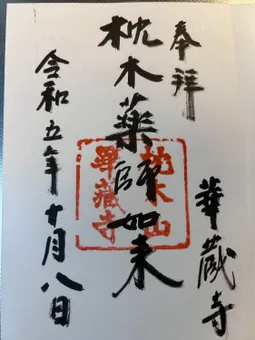 奉拝
枕木薬師如来
華蔵寺
令和五年十月八日
枕木山
華蔵寺